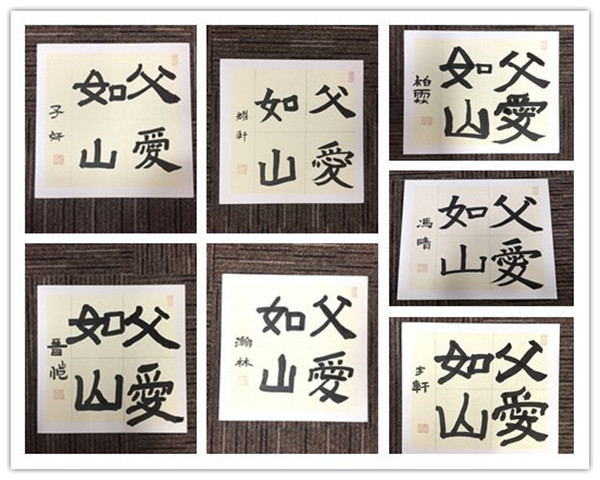 父愛
如山
子妍
父愛
如山
父愛
如山
父愛
如山
馮晴
父愛
如山
父愛
如山
瀚林
父愛
如山